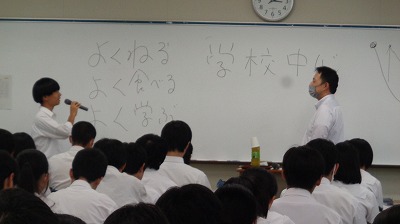 よくねる
よく食べる
よく学ぶ
学校中心